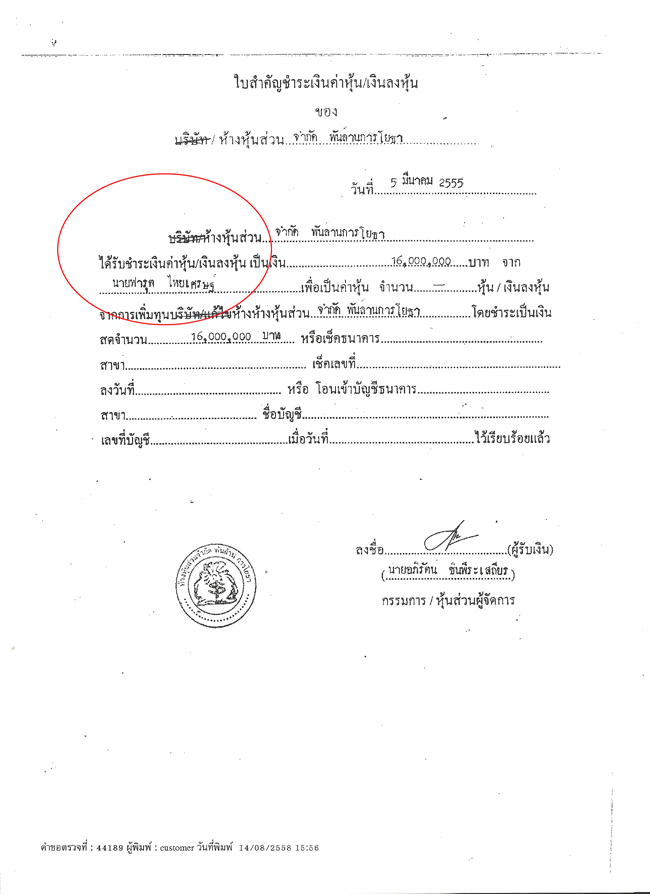 ใบสำคัญชำระเงินค่าหุ้น/เงินลงหุ้น
ของ
บริษัท / ห้างหุ้นส่วน จำกัด พันลานการโยธา
วันที่ 5 มีนาคม 2555
บริษัท/ห้างหุ้นส่วน จำกัด พันลานการโยธา
ได้รับชำระเงินค่าหุ้น/เงินลงหุ้น เป็นเงิน 16,000,000 บาท จาก
นายฟารุต ไทยเศรษฐ์ เพื่อเป็นค่าหุ้น จำนวน — หุ้น / เงินลงหุ้น
จากการเพิ่มทุนบริษัท/แก้ไขห้างห้างหุ้นส่วน จำกัด พันลานการโยธา โดยชำระเป็นเงิน
สดจำนวน 16,000,000 บาท หรือเช็คธนาคาร
สาขา เช็คเลขที่
ลงวันที่ หรือ โอนเข้าบัญชีธนาคาร
สาขา ชื่อบัญชี
เลขที่บัญชี เมื่อวันที่ ไว้เรียบร้อยแล้ว
ลงชื่อ (ผู้รับเงิน)
(นายอภิรัตน์ ชินพีระเสถียร)
กรรมการ / หุ้นส่วนผู้จัดการ
ห้างหุ้นส่วนจำกัด
คำขอตรวจที่ : 44189 ผู้พิมพ์ : customer วันที่พิมพ์ 14/08/2558 15:56